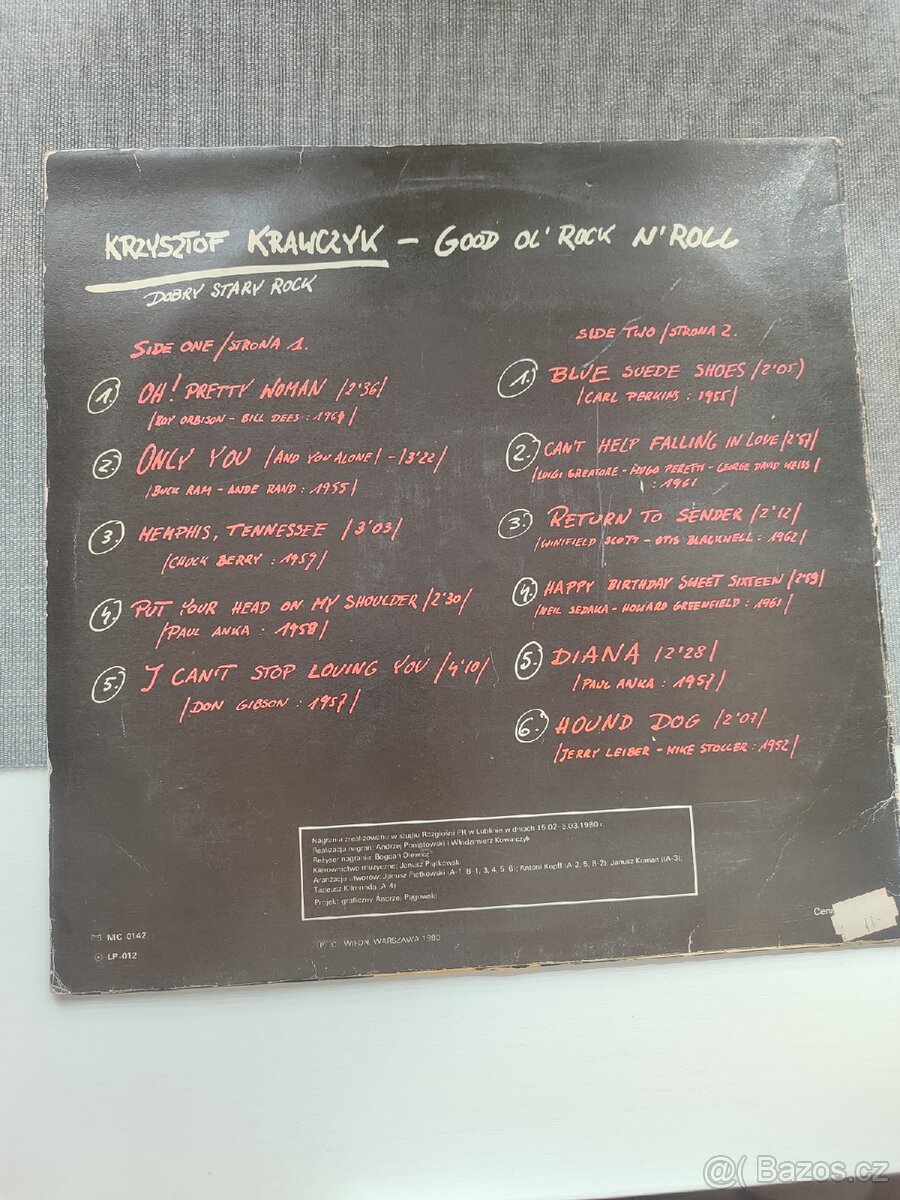 KRZYSZTOF KRAWCZYK – GOOD OL' ROCK N' ROLL
DOBRY STARY ROCK
SIDE ONE /STRONA 1.
1. OH! PRETTY WOMAN /2'36/
/ROY ORBISON - BILL DEES : 1964/
2. ONLY YOU /AND YOU ALONE/ - /3'22/
/BUCK RAM - ANDE RAND : 1955/
3. MEMPHIS, TENNESSEE /3'03/
/CHUCK BERRY : 1959/
4. PUT YOUR HEAD ON MY SHOULDER /2'30/
/PAUL ANKA : 1958/
5. I CAN'T STOP LOVING YOU /4'10/
/DON GIBSON : 1957/
SIDE TWO /STRONA 2.
1. BLUE SUEDE SHOES /2'05)
/CARL PERKINS : 1955/
2. CAN'T HELP FALLING IN LOVE /2'57/
/LUIGI GREATORE - HUGO PERETTI - GEORGE DAVID WEISS/
: 1961
3. RETURN TO SENDER /2'12/
/WINIFIELD SCOTT - OTIS BLACKWELL : 1962/
4. HAPPY BIRTHDAY SWEET SIXTEEN /2'59/
/NEIL SEDAKA - HOWARD GREENFIELD : 1961/
5. DIANA /2'28/
/PAUL ANKA : 1957/
6. HOUND DOG /2'07/
/JERRY LEIBER - MIKE STOLLER : 1952/
Nagrania zrealizowano w studiu Rozgłośni PR w Lublinie w dniach 15.02-5.03.1980 r.
Realizacja nagrań: Andrzej Poniatowski i Włodzimierz Kowalczyk
Reżyser nagrania: Bogdan Olewicz
Kierownictwo muzyczne: Janusz Piątkowski
Aranżacja utworów: Janusz Piątkowski (A-1, B-1, 3, 4, 5, 6); Antoni Kopff (A-2, 5, B-2); Janusz Koman (A-3);
Tadeusz Klimonda (A-4)
Projekt graficzny Andrzej Pągowski
MC-0142
LP-012
(P) (C) WIFON, WARSZAWA 1980
Cen
@( Bazos.cz